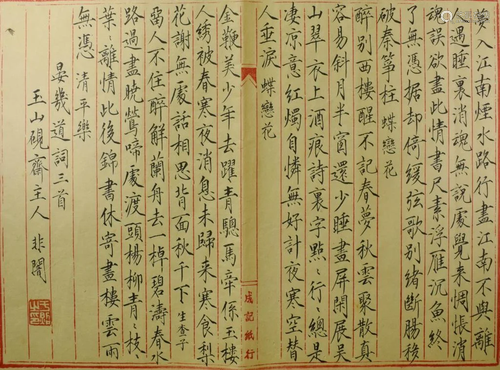 夢入江南煙水路行盡江南不與離
人遇睡裏消魂無說處覺来惆悵消
魂誤欲盡此情書尺素浮雁沉魚終
了無憑据却倚緩弦歌別緒斷腸移
破秦箏柱 蝶戀花
醉別西樓醒不記春夢秋雲聚散真
容易斜月半窗還少睡畫屏閑展吳
山翠衣上酒痕詩裏字點〻行〻總是
淒涼意紅燭自憐無好計夜寒空替
人垂淚 蝶戀花
金鞭美少年去躍青驄馬牽係玉樓
人绣被春寒夜消息未歸来寒食梨
花謝無處話相思背面秋千下 生查子
留人不住醉解蘭舟去一棹碧濤春水
路過盡曉鶯啼處渡頭楊柳青〻枝〻
葉〻離情此後錦書休寄畫樓雲雨
無憑 清平樂
晏幾道詞三首
玉山硯齋主人 非闇
成記紙行